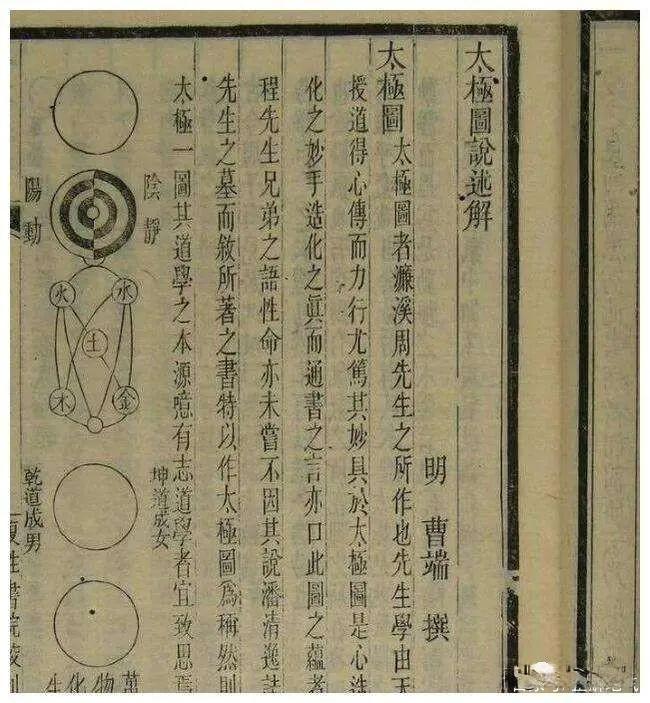 太極圖說述解
明 曹端 撰
太極圖 太極圖者濂溪周先生之所作也先生學由天
授道得心傳而力行尤篤其妙具於太極圖是心造
化之妙手造化之眞而通書之言亦口此圖之蘊者
程先生兄弟之語性命亦未嘗不因其說潘清逸誌
先生之墓而敘所著之書特以作太極圖爲稱然則
太極一圖其道學之本源噫有志道學者宜致思焉
陰靜
陽動
水
火
土
金
木
坤道成女
乾道成男
萬
物
化
生
復性書院校刊